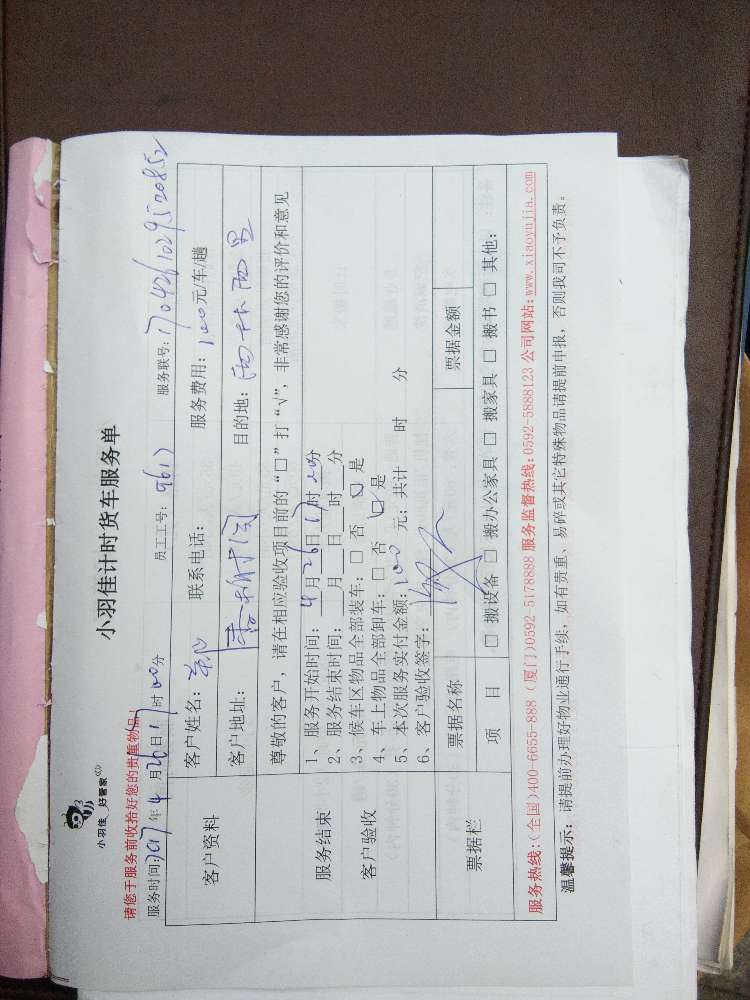 小羽佳 好管家
小羽佳计时货车服务单
请您于服务前收拾好您的贵重物品!
服务时间:2017年4月26日17时00分 员工工号: 9617 服务联号: 1704261029520852
客户资料
客户姓名: 郑 联系电话: 服务费用: 100元/车/趟
客户地址: 目的地:
尊敬的客户，请在相应验收项目前的“□”打“√”，非常感谢您的评价和意见
服务结束
客户验收
1、服务开始时间: 4月26日17时20分
2、服务结束时间: 月 日 时 分
3、候车区物品全部装车: □ 否 ☑ 是
4、车上物品全部卸车: □ 否 ☑ 是
5、本次服务实付金额: 100 元; 共计 时 分
6、客户验收签字:
票据栏
票据名称 票据金额
项 目 □ 搬设备 □ 搬办公家具 □ 搬家具 □ 搬书 □ 其他:
服务热线:(全国)400-6655-888 (厦门)0592-5178888 服务监督热线:0592-5888123 公司网站:www.xiaoyujia.com
温馨提示: 请提前办理好物业通行手续，如有贵重、易碎或其它特殊物品请提前申报，否则我司不予负责。